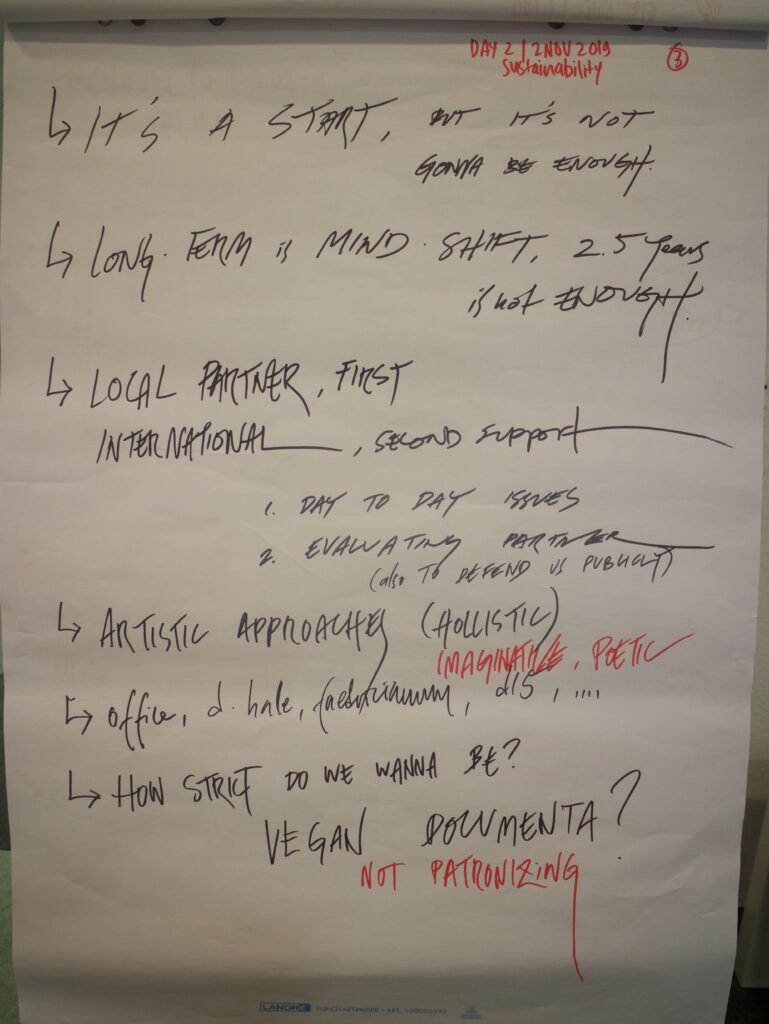 DAY 2 / 2 NOV 2019 ③
Sustainability
↳ IT'S A START, BUT IT'S NOT
GONNA BE ENOUGH.
↳ LONG·TERM is MIND·SHIFT, 2.5 years
is not ENOUGH.
↳ LOCAL PARTNER, FIRST
INTERNATIONAL, SECOND SUPPORT
1. DAY TO DAY ISSUES
2. EVALUATING PARTNER
(also TO DEFEND VS PUBLICLY)
↳ ARTISTIC APPROACHES (HOLLISTIC)
IMAGINATIVE, POETIC
↳ office, d·hale, d15, ....
↳ HOW STRICT DO WE WANNA BE?
VEGAN DOCUMENTA?
NOT PATRONIZING
LANDRÉ FLIPCHARTPAPIER · ART. 100050593